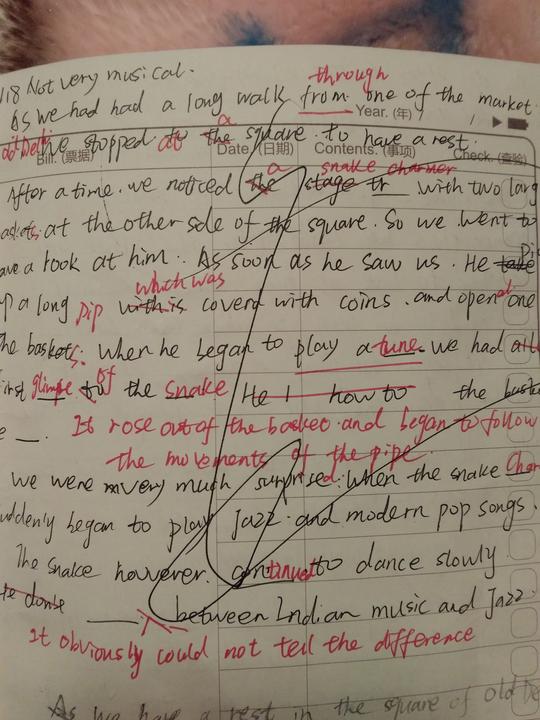 118 Not very musical.
through
As we had had a long walk from one of the market
Year. (年)
old Delhi we stopped at the a square to have a rest.
Bill. (票据) Date. (日期) Contents. (事项) Check. (查验)
a snake charmer
After a time. we noticed the stage tr with two larg
askets at the other side of the square. So we went to
ave a rook at him. As soon as he saw us. He take
which was
p a long pip with is coverd with coins. and opened one
the baskets. When he began to play a tune we had a
first glimpe to of the snake He I how to the
It rose out of the basket and began to follow
the movements of the pipe.
we were very much surprised. when the snake char
uddenly began to play Jazz. and modern pop songs.
The snake however. continued to dance slowly
between Indian music and Jazz.
It obviously could not tell the difference
As we have a rest in the square of old De